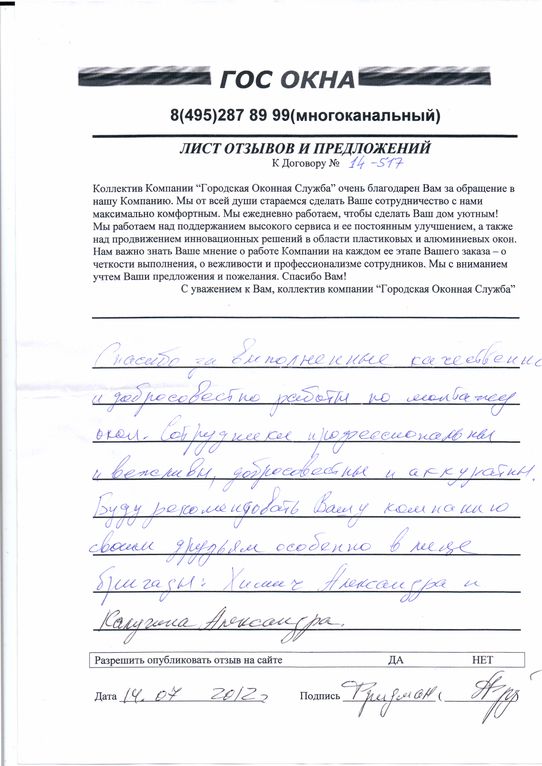 ГОС ОКНА
8(495)287 89 99(многоканальный)
ЛИСТ ОТЗЫВОВ И ПРЕДЛОЖЕНИЙ
К Договору № 14-517
Коллектив Компании “Городская Оконная Служба” очень благодарен Вам за обращение в
нашу Компанию. Мы от всей души стараемся сделать Ваше сотрудничество с нами
максимально комфортным. Мы ежедневно работаем, чтобы сделать Ваш дом уютным!
Мы работаем над поддержанием высокого сервиса и ее постоянным улучшением, а также
над продвижением инновационных решений в области пластиковых и алюминиевых окон.
Нам важно знать Ваше мнение о работе Компании на каждом ее этапе Вашего заказа – о
четкости выполнения, о вежливости и профессионализме сотрудников. Мы с вниманием
учтем Ваши предложения и пожелания. Спасибо Вам!
С уважением к Вам, коллектив компании “Городская Оконная Служба”
Спасибо за выполненные качественно
и добросовестно работы по монтажу
окон. Сотрудники профессиональны
и вежливы, добросовестны и аккуратны.
Буду рекомендовать Вашу компанию
своим друзьям особенно в лице
бригады: Химич Александра и
Калугина Александра.
Разрешить опубликовать отзыв на сайте ДА НЕТ
Дата 14.07 2012г Подпись Фридман